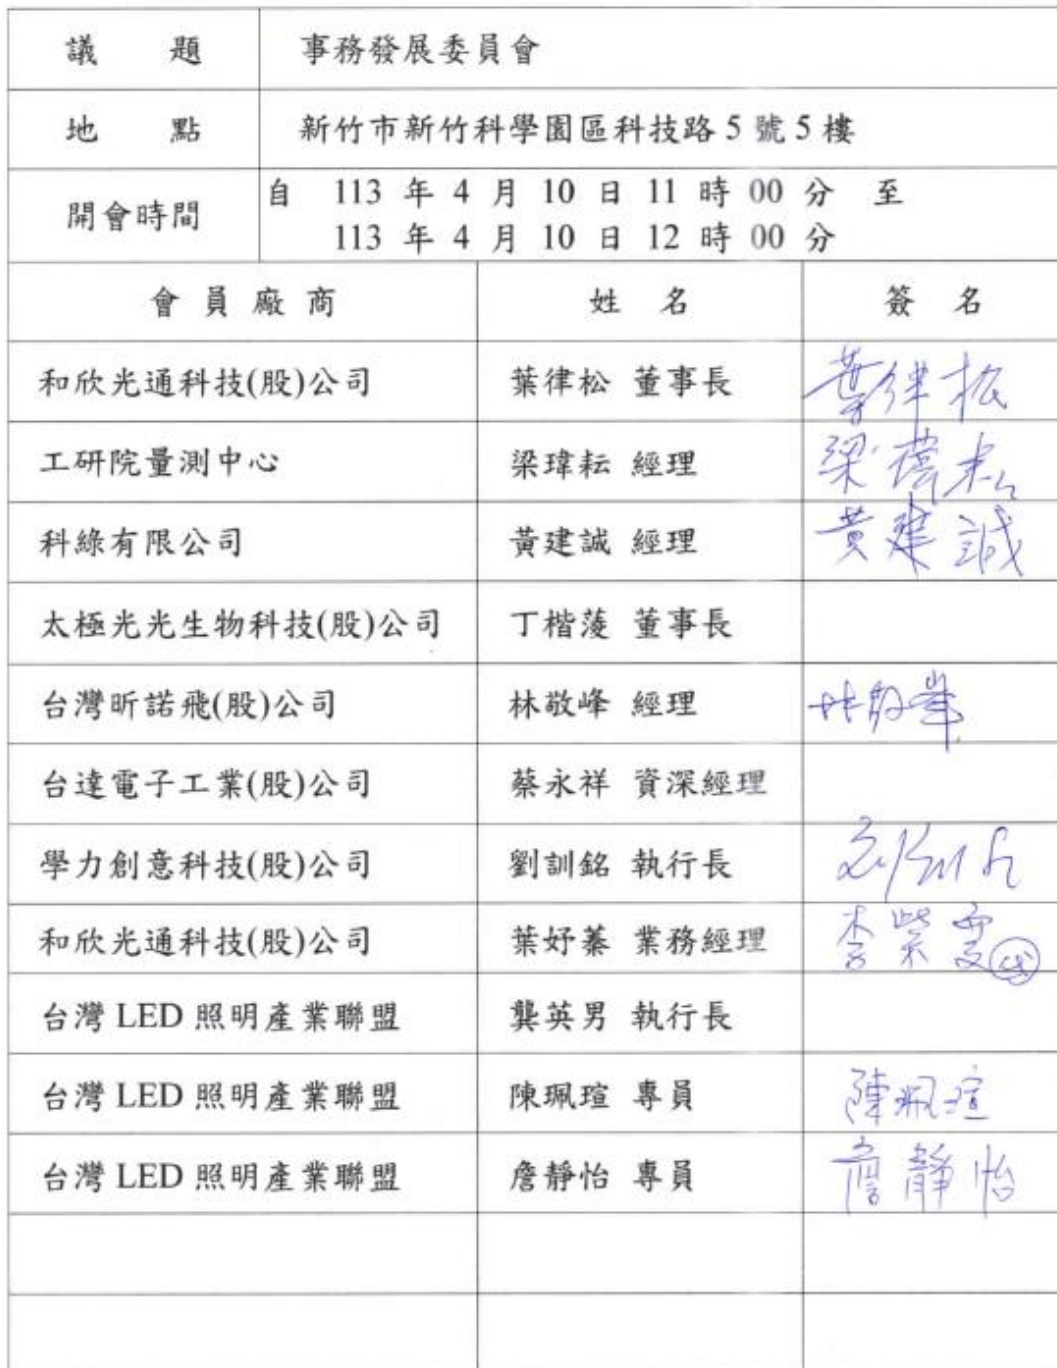 議 題 事務發展委員會
地 點 新竹市新竹科學園區科技路 5 號 5 樓
開會時間 自 113 年 4 月 10 日 11 時 00 分 至
113 年 4 月 10 日 12 時 00 分
會 員 廠 商 姓 名 簽 名
和欣光通科技(股)公司 葉律松 董事長 葉律松
工研院量測中心 梁瑋耘 經理 梁瑋耘
科綠有限公司 黃建誠 經理 黃建誠
太極光光生物科技(股)公司 丁楷蓤 董事長
台灣昕諾飛(股)公司 林敬峰 經理 林敬峯
台達電子工業(股)公司 蔡永祥 資深經理
學力創意科技(股)公司 劉訓銘 執行長
和欣光通科技(股)公司 葉妤蓁 業務經理 李紫雯 代
台灣 LED 照明產業聯盟 龔英男 執行長
台灣 LED 照明產業聯盟 陳珮瑄 專員 陳珮瑄
台灣 LED 照明產業聯盟 詹靜怡 專員 詹靜怡